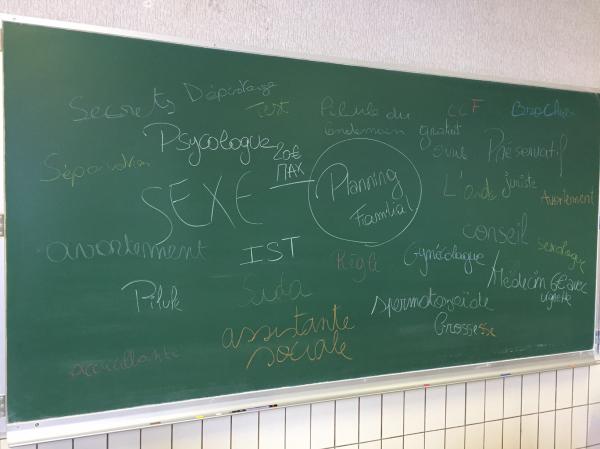 Secrets Dépistage
Test
Pilule du
lendemain
CCF
gratuit
Psycologue
20€
MAX
Préservatif
Séparation
SEXE
Planning
Familial
juriste
Avortement
avortement
IST
Règle
Gynécologue
conseil
sexologue
Médecin
Pilule
Sida
spermatozoïde
Grossesse
assistante
sociale
accueillante